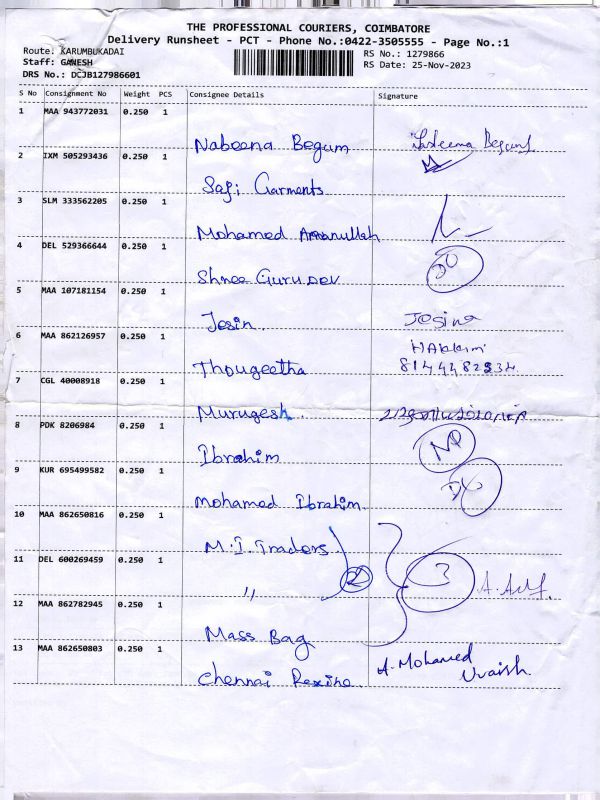 THE PROFESSIONAL COURIERS, COIMBATORE
Delivery Runsheet - PCT - Phone No.:0422-3505555 - Page No.:1
Route: KARUMBUKADAI
RS No.: 1279866
Staff: GANESH
RS Date: 25-Nov-2023
DRS No.: DCJB127986601
S No Consignment No Weight PCS Consignee Details Signature
1 MAA 943772031 0.250 1
Nabeena Begum
Begum
2 IXM 505293436 0.250 1
Safi Garments
3 SLM 333562205 0.250 1
Mohamed Amanullah
4 DEL 529366644 0.250 1
Shree Guru Dev
5 MAA 107181154 0.250 1
Jesin Josina
6 MAA 862126957 0.250 1
HAkkim
Thougeetha 8144482834
7 CGL 40008918 0.250 1
Murugesh
8 PDK 8206984 0.250 1
Ibrahim NP
9 KUR 695499582 0.250 1
Mohamed Ibrahim
10 MAA 862650816 0.250 1
M.I. Traders
11 DEL 600269459 0.250 1
〃 2 3
12 MAA 862782945 0.250 1
Mass Bag
13 MAA 862650803 0.250 1
Chennai Rexine A. Mohamed
Uvaish